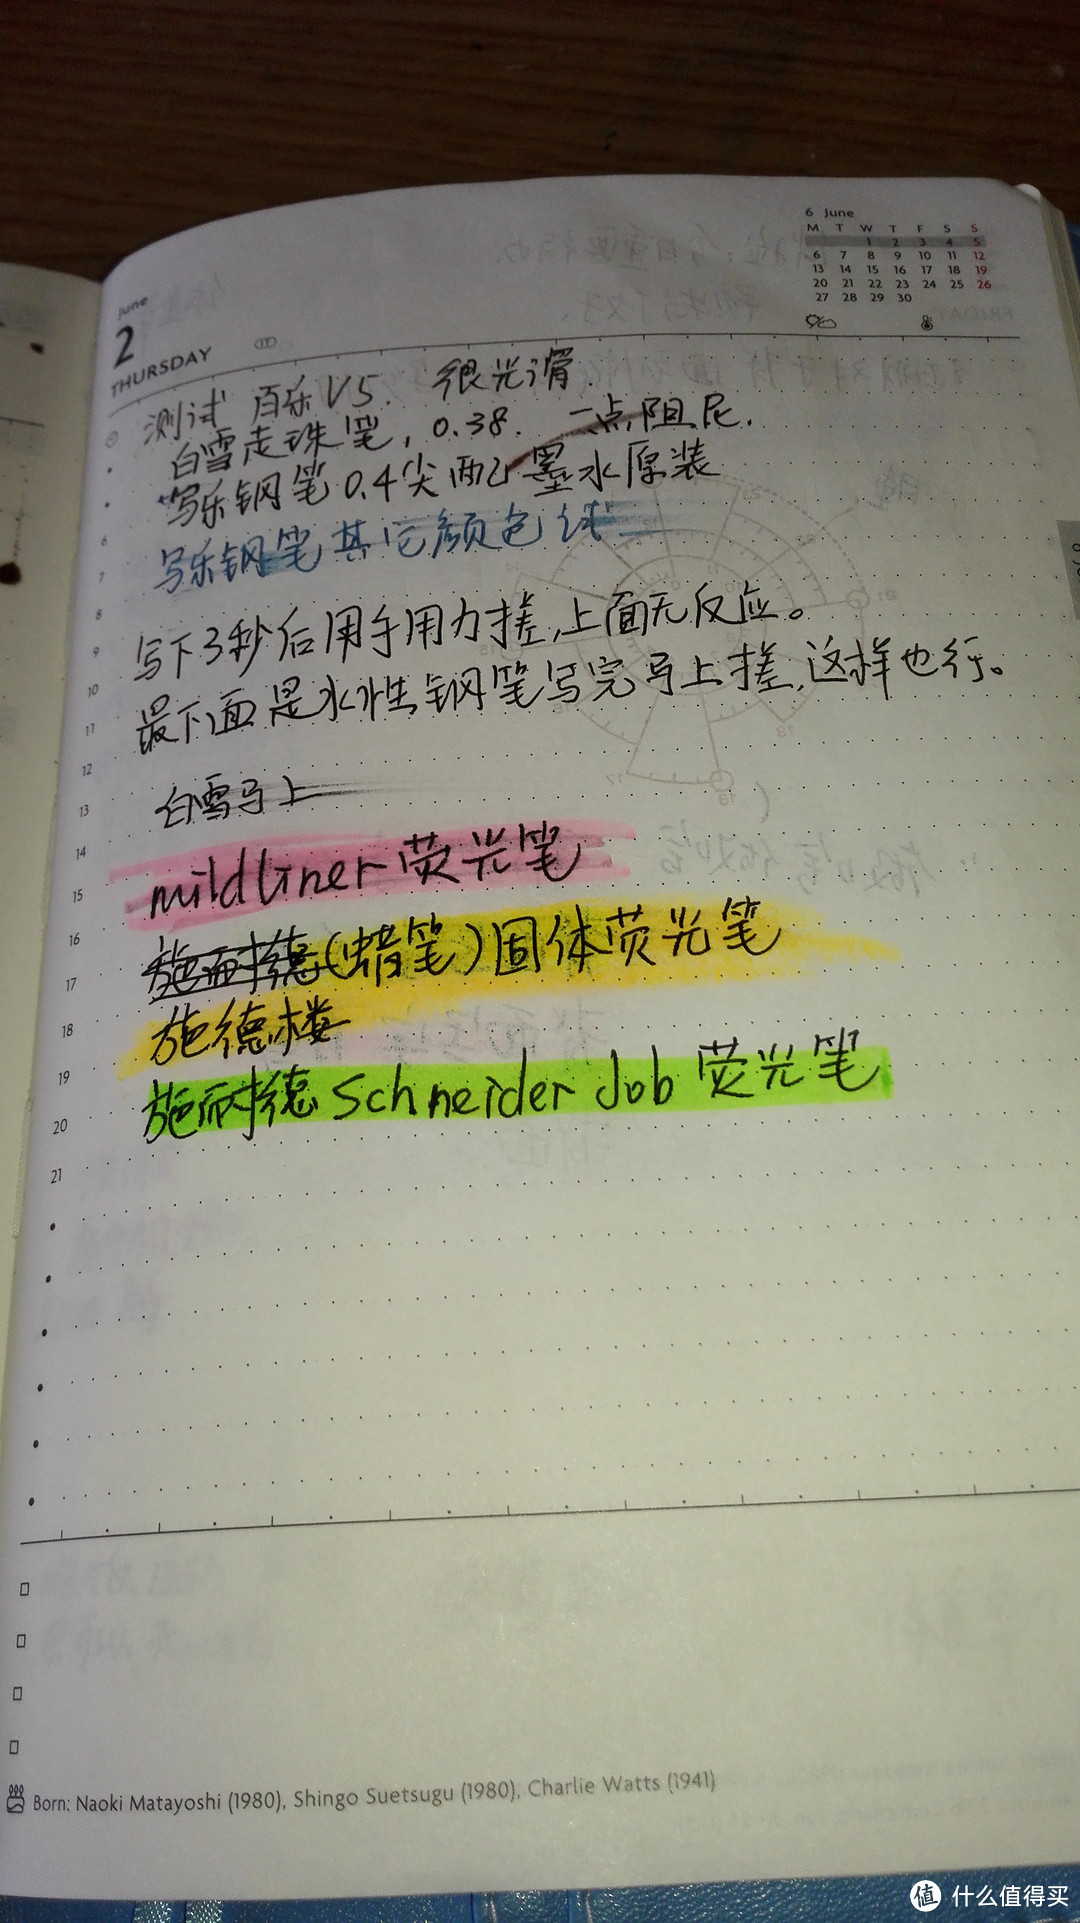 6 June
M T W T F S S
1 2 3 4 5
6 7 8 9 10 11 12
13 14 15 16 17 18 19
20 21 22 23 24 25 26
27 28 29 30
June
2
THURSDAY
测试 百乐V5. 很光滑.
白雪走珠笔, 0.38. 一点阻尼.
写乐钢笔0.4尖 配墨水原装
写乐钢笔其它颜色
写下3秒后用手用力搓,上面无反应。
最下面是水性钢笔写完马上搓,这样也行。
白雪马上
mildliner荧光笔
施耐德(蜡笔)固体荧光笔
施德楼
施耐德 Schneider Job 荧光笔
6
7
8
9
10
11
12
13
14
15
16
17
18
19
20
21
Born: Naoki Matayoshi (1980), Shingo Suetsugu (1980), Charlie Watts (1941)
值 什么值得买